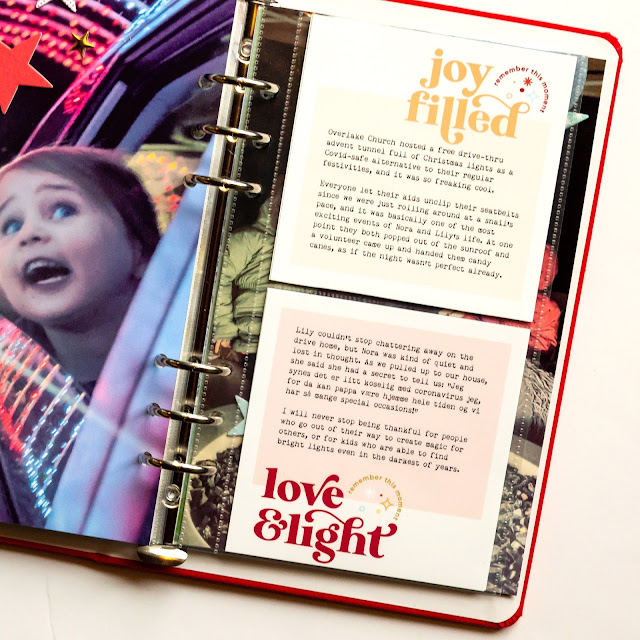 joy
filled
remember this moment
Overlake Church hosted a free drive-thru
advent tunnel full of Christmas lights as a
Covid-safe alternative to their regular
festivities, and it was so freaking cool.
Everyone let their kids unclip their seatbelts
since we were just rolling around at a snail's
pace, and it was basically one of the most
exciting events of Nora and Lily's life. At one
point they both popped out of the sunroof and
a volunteer came up and handed them candy
canes, as if the night wasn't perfect already.
Lily couldn't stop chattering away on the
drive home, but Nora was kind of quiet and
lost in thought. As we pulled up to our house,
she said she had a secret to tell us: "Jeg
synes det er litt koselig med coronavirus jeg,
for da kan pappa være hjemme hele tiden og vi
har så mange special occasions!"
I will never stop being thankful for people
who go out of their way to create magic for
others, or for kids who are able to find
bright lights even in the darkest of years.
love
&light
remember this moment